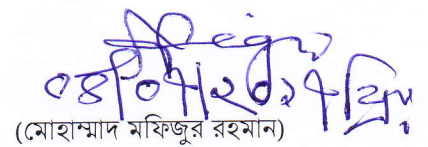 ০৪/০৭/২০১৭ খ্রি.
(মোহাম্মাদ মফিজুর রহমান)